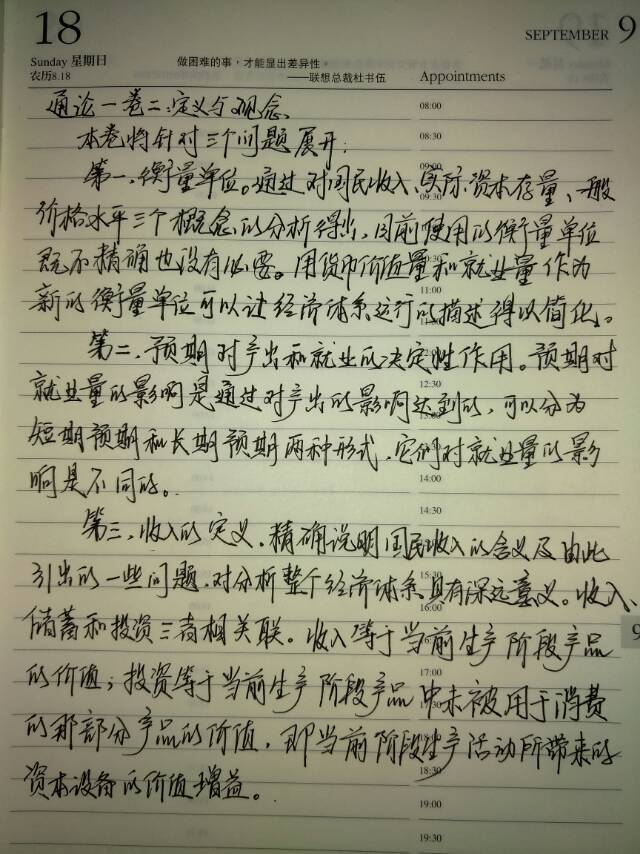 18
SEPTEMBER 9
Sunday 星期日
农历8.18
做困难的事，才能显出差异性。
——联想总裁杜书伍
Appointments
08:00
通论—卷二：定义与观念
08:30
本卷将针对三个问题展开：
09:00
第一、衡量单位。通过对国民收入、实际资本存量、一般
09:30
价格水平三个概念的分析得出，目前使用的衡量单位
既不精确也没有必要。用货币价值量和就业量作为
11:00
新的衡量单位可以让经济体系运行的描述得以简化。
第二、预期对产出和就业的决定性作用。预期对
12:30
就业量的影响是通过对产出的影响达到的，可以分为
短期预期和长期预期两种形式，它们对就业量的影
14:00
响是不同的。
14:30
第三、收入的定义，精确说明国民收入的含义及由此
引出的一些问题，对分析整个经济体系具有深远意义。收入、
15:30
16:00
储蓄和投资三者相关联。收入等于当前生产阶段产品
9
17:00
的价值；投资等于当前生产阶段产品中未被用于消费
的那部分产品的价值，即当前阶段生产活动所带来的
18:30
资本设备的价值增益。
19:00
19:30